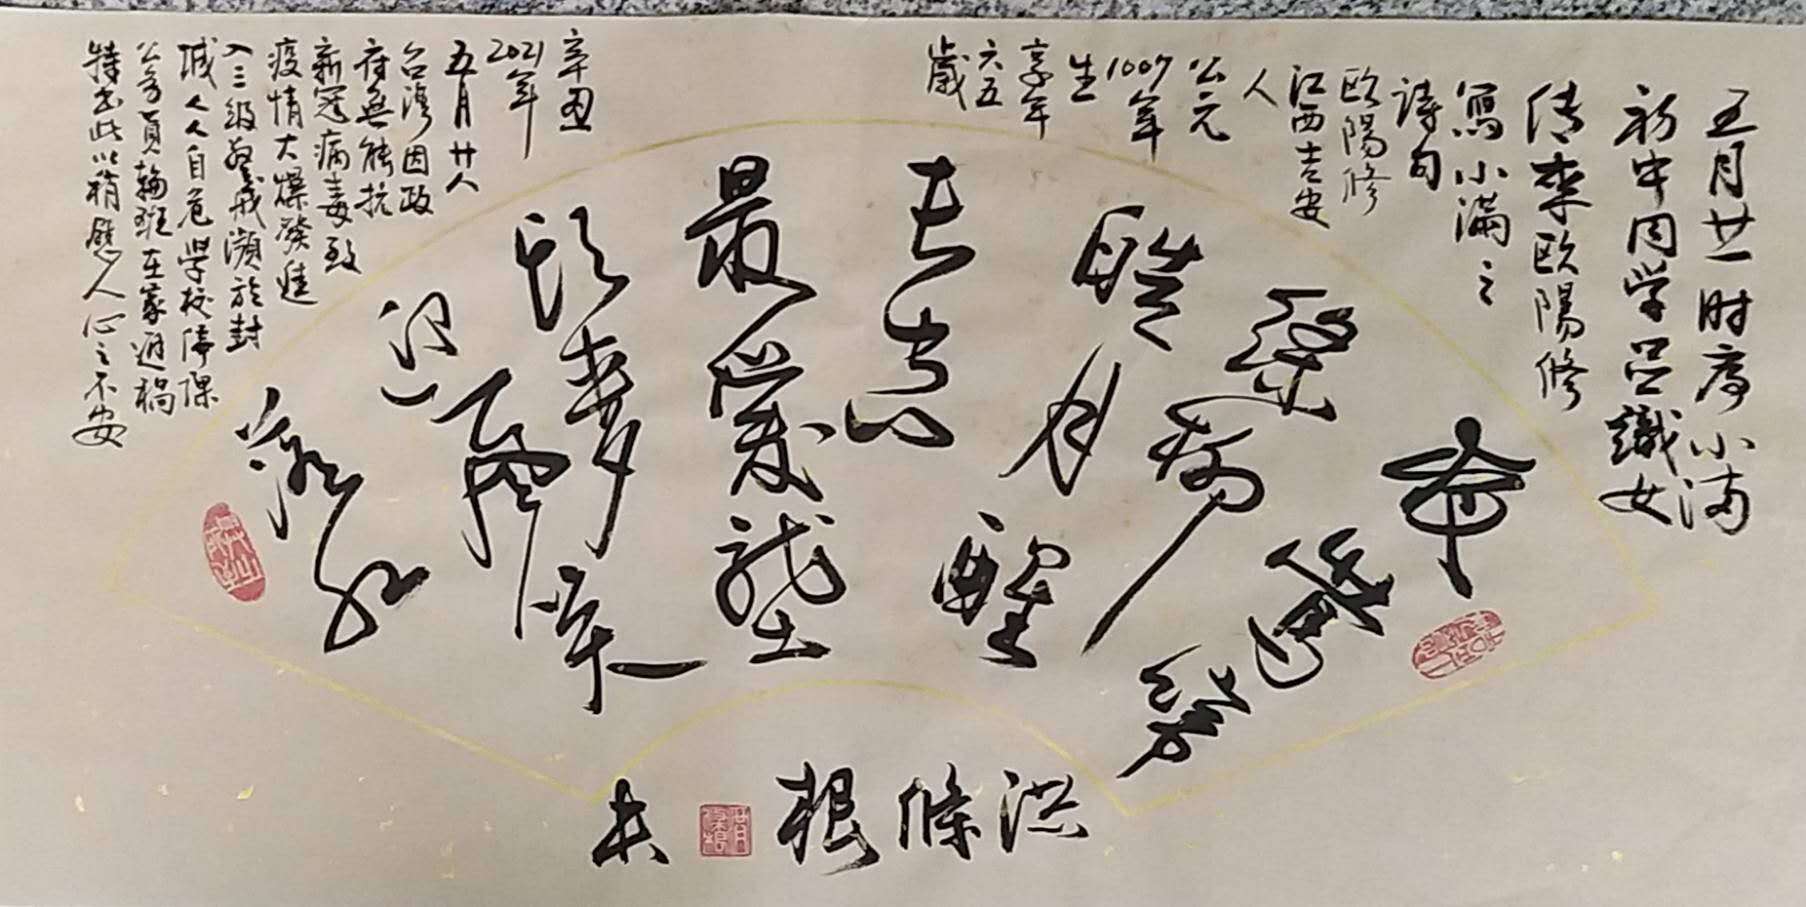 五月廿一时序小满
初中同学吕識女
传来欧陽修
寫小滿之
詩句
欧陽修
江西吉安
人
公元
1007年
生
享年
六五
歲
夜鶯啼
綠柳
皓月醒
長空
最愛壟
頭麥笑
迎風
落紅
辛丑
2021年
五月廿八
台湾因政
府無能抗
新冠病毒致
疫情大爆發進
入三级警戒瀕於封
城人人自危学校停课
公务員輪班在家避禍
特书此以稍慰人心之不安
洪條根書